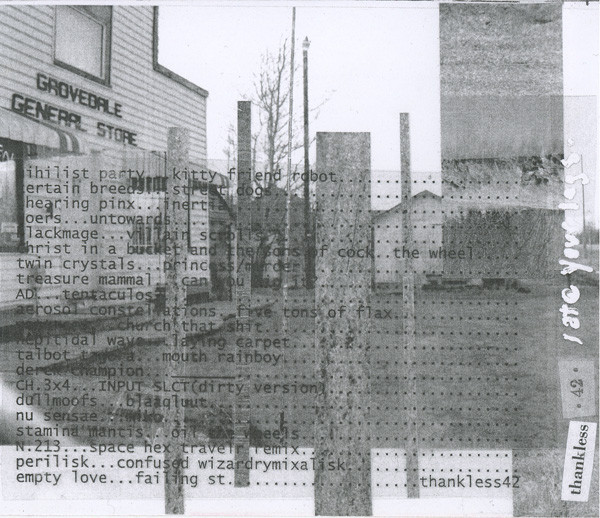 GROVEDALE
GENERAL STORE
ihilist party...kitty friend robot
ertain breeds...street dogs
hearing pinx...inert
oers...untowards
lackmage...villain
hrist in a bucket and the sons of cock..the wheel
twin crystals...princess murder
treasure mammal...can you dig it
AD...tentaculos
aerosol constellations..five tons of flax
church that shit
hepitidal wave...laying carpet
talbot tagora...mouth rainboy
derek champion
CH.3x4...INPUT SLCT(dirty version)
dullmoofs...blaagluut
nu sensae
stamina mantis..oil the wheels
N.213...space hex travel remix
perilisk...confused wizardrymixalisk
empty love...failing st.
thankless42
I ate your legs
• 42 •
thankless